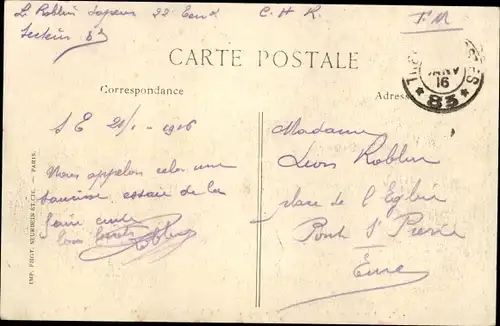 L. Roblin Sapeur 22 C.H.R. F.M
Secteur 83
CARTE POSTALE
Correspondance
Adresse
JANV
16
* 83 *
S E 21/1 - 1916
Madame
Nous appelons cela une
Léon Roblin
essaie de la
place de l'Eglise
faire cuire
Roblin
Pont St Pierre
Eure
IMP. PHOT. NEURDEIN ET CIE. — PARIS.